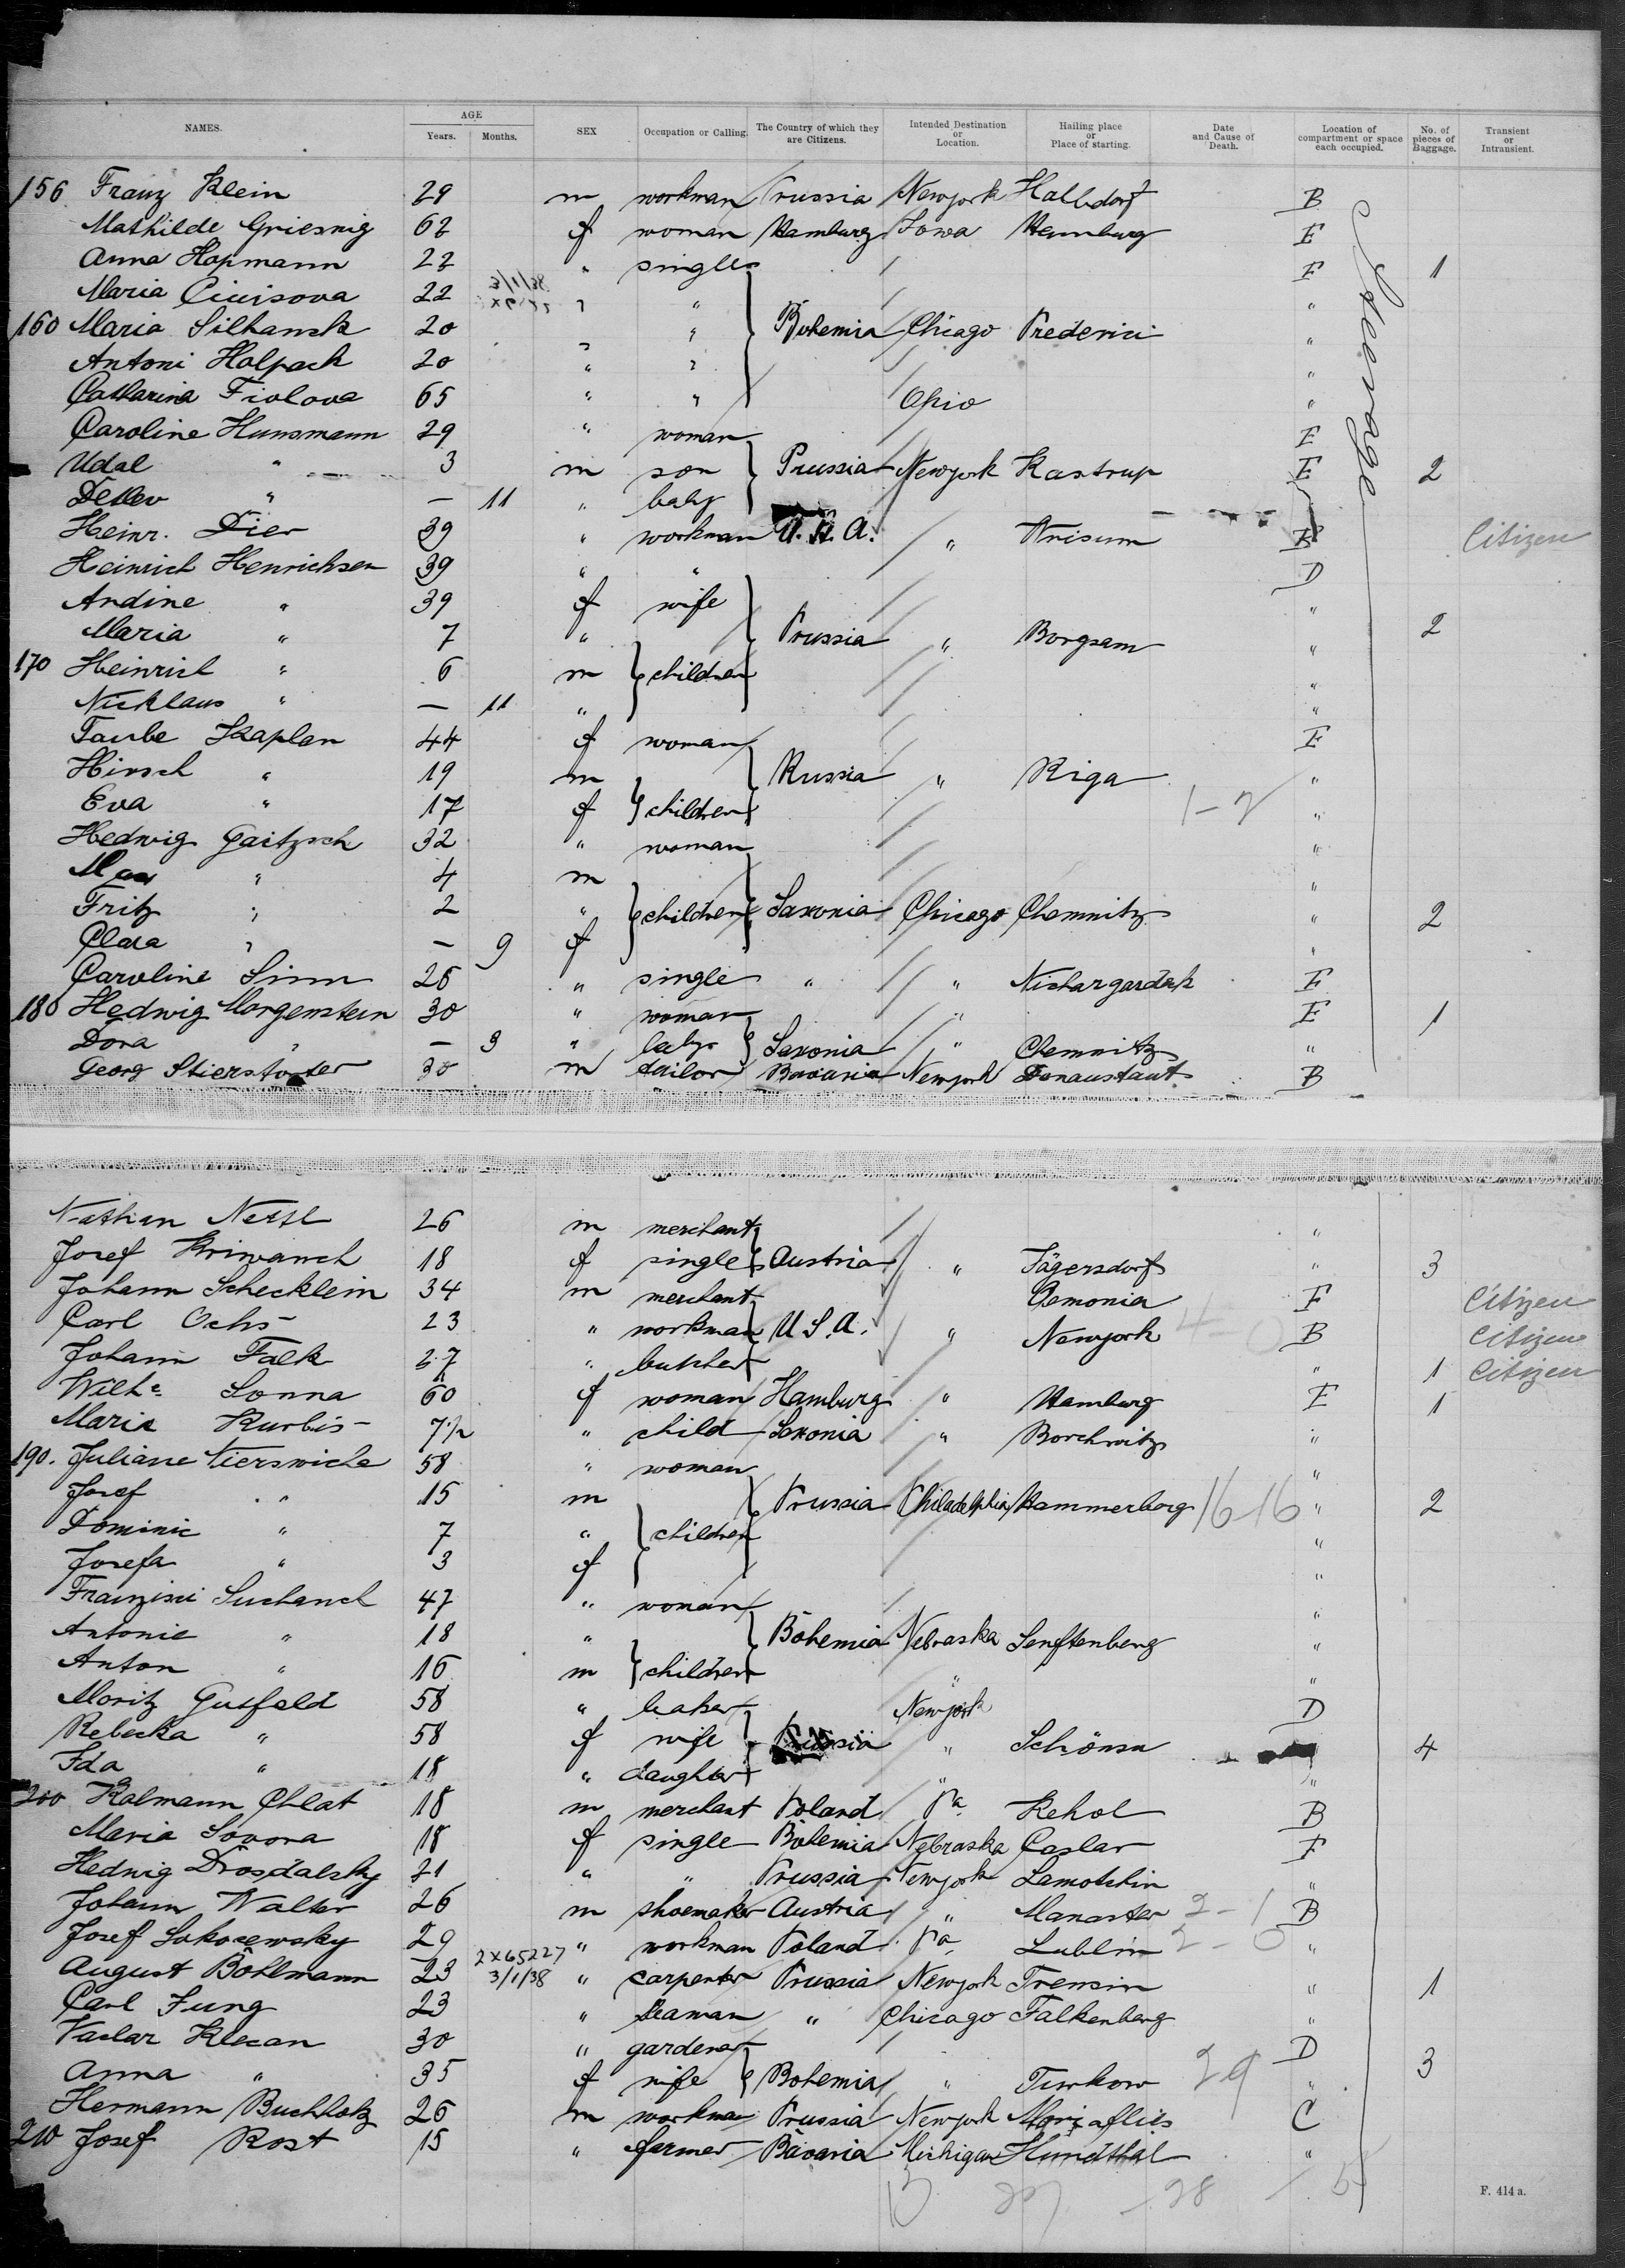 NAMES. AGE Years. Months. SEX Occupation or Calling. The Country of which they are Citizens. Intended Destination or Location. Hailing place or Place of starting. Date and Cause of Death. Location of compartment or space each occupied. No. of pieces of Baggage. Transient or Intransient.
156 Franz Klein 29 m workman Prussia Newyork Halbdorf B
Mathilde Griesnig 62 f woman Hamburg Iowa Hamburg E
Anna Hopmann 22 " single F 1
Maria 22 " " "
160 Maria Silhanek 20 " " Bohemia Chicago "
Antoni Holpach 20 " " "
Catharina Fiolova 65 " " Ohio "
Caroline Hunsmann 29 " woman E
Udal " 3 m son Prussia Newyork Kastrup E 2
Detlev " — 11 " baby
Heinr. Dier 39 " workman U.S.A. " B Citizen
Heinrich Henrichsen 39 " " D
Andine " 39 f wife "
Maria " 7 " Prussia " Borgsam " 2
170 Heinrich " 6 m children "
Nicklaus " — 11 " "
Taube Kaplan 44 f woman E
Hirsch " 19 m Russia " Riga "
Eva " 17 f children 1-2 "
Hedwig Gaitzsch 32 " woman "
Max " 4 m "
Fritz " 2 " children Saxonia Chicago Chemnitz " 2
Clara " — 9 f "
Caroline Sinn 26 " single " " F
180 Hedwig Morgenstern 30 " woman " E 1
Dora " — 9 " baby Saxonia " Chemnitz "
Georg Stierstorfer 30 m tailor Bavaria Newyork Donaustauf B
Nathan Nettl 26 m merchant "
Josef Kriwanch 18 f single Austria " Jägersdorf " 3
Johann Schecklein 34 m merchant F Citizen
Carl Ochs 23 " workman U.S.A. " Newyork 4 0 B Citizen
Johann Falk 27 " butcher " 1 Citizen
Wilhe. Sonna 60 f woman Hamburg " Hamburg E 1
Maria Kurbis 7 1/2 " child Saxonia " Borchwitz "
190. Juliane 58 " woman "
Josef " 15 m Prussia Philadelphia Hammerborg 16-16 " 2
Dominic " 7 " children "
Josefa " 3 f "
Suchanek 47 " woman "
Antonie " 18 " Bohemia Nebraska Senftenberg "
Anton " 16 m children " "
Moritz Gutfeld 58 " baker Newyork D
Rebecka " 58 f wife " Schönsee 4
Ida " 18 " daughter " "
200 Kalmann Chlat 18 m merchant Poland Pa. Kehol B
Maria Sovora 18 f single Bohemia Nebraska Caslav F
Hedwig Drosdalsky 21 " " Prussia Newyork "
Johann Walter 26 m shoemaker Austria " 2-1 B
Josef Sokosewsky 29 " workman Poland Pa. Lublin 2-0 "
August Böhlmann 23 2x65227 3/1/38 " carpenter Prussia Newyork " 1
Carl Jung 23 " seaman " Chicago Falkenberg "
Vaclav Klecan 30 " gardener D
Anna " 35 f wife Bohemia " Turkow 29 " 3
Hermann Buchholz 26 m workman Prussia Newyork C
210 Josef Rost 15 " farmer Bavaria Michigan Hundthal "
Steerage
F. 414 a.